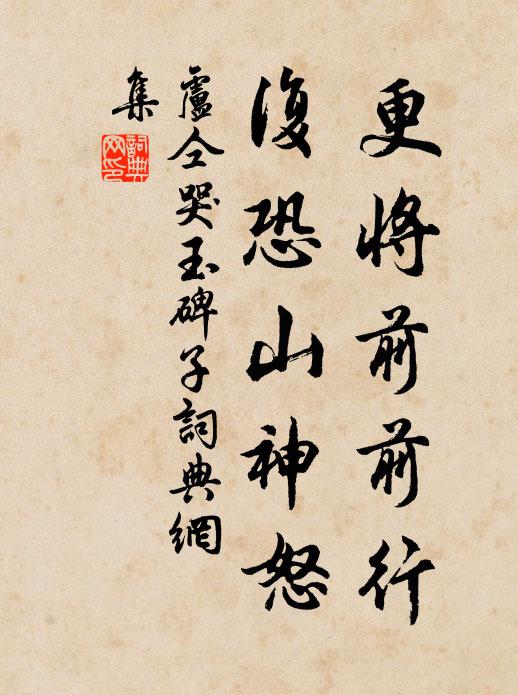 更將前前行
復恐山神怒
盧仝哭玉碑子詞典網
集
詞典
网印